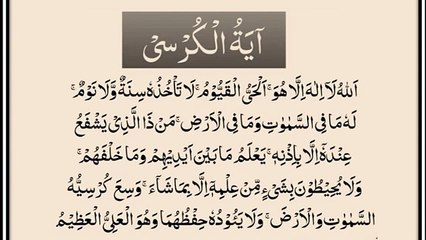 اٰیَةُ الْکُرْسِیْ
اَللّٰهُ لَاۤ اِلٰهَ اِلَّا هُوَ ۚ اَلْحَیُّ الْقَیُّوْمُ ۚ لَا تَاْخُذُهٗ سِنَةٌ وَّلَا نَوْمٌ ؕ
لَهٗ مَا فِی السَّمٰوٰتِ وَمَا فِی الْاَرْضِ ؕ مَنْ ذَا الَّذِیْ یَشْفَعُ
عِنْدَهٗۤ اِلَّا بِاِذْنِهٖ ؕ یَعْلَمُ مَا بَیْنَ اَیْدِیْهِمْ وَمَا خَلْفَهُمْ ۚ
وَلَا یُحِیْطُوْنَ بِشَیْءٍ مِّنْ عِلْمِهٖۤ اِلَّا بِمَا شَآءَ ۚ وَسِعَ کُرْسِیُّهُ
السَّمٰوٰتِ وَالْاَرْضَ ۚ وَلَا یَئُوْدُهٗ حِفْظُهُمَا وَهُوَ الْعَلِیُّ الْعَظِیْمُ